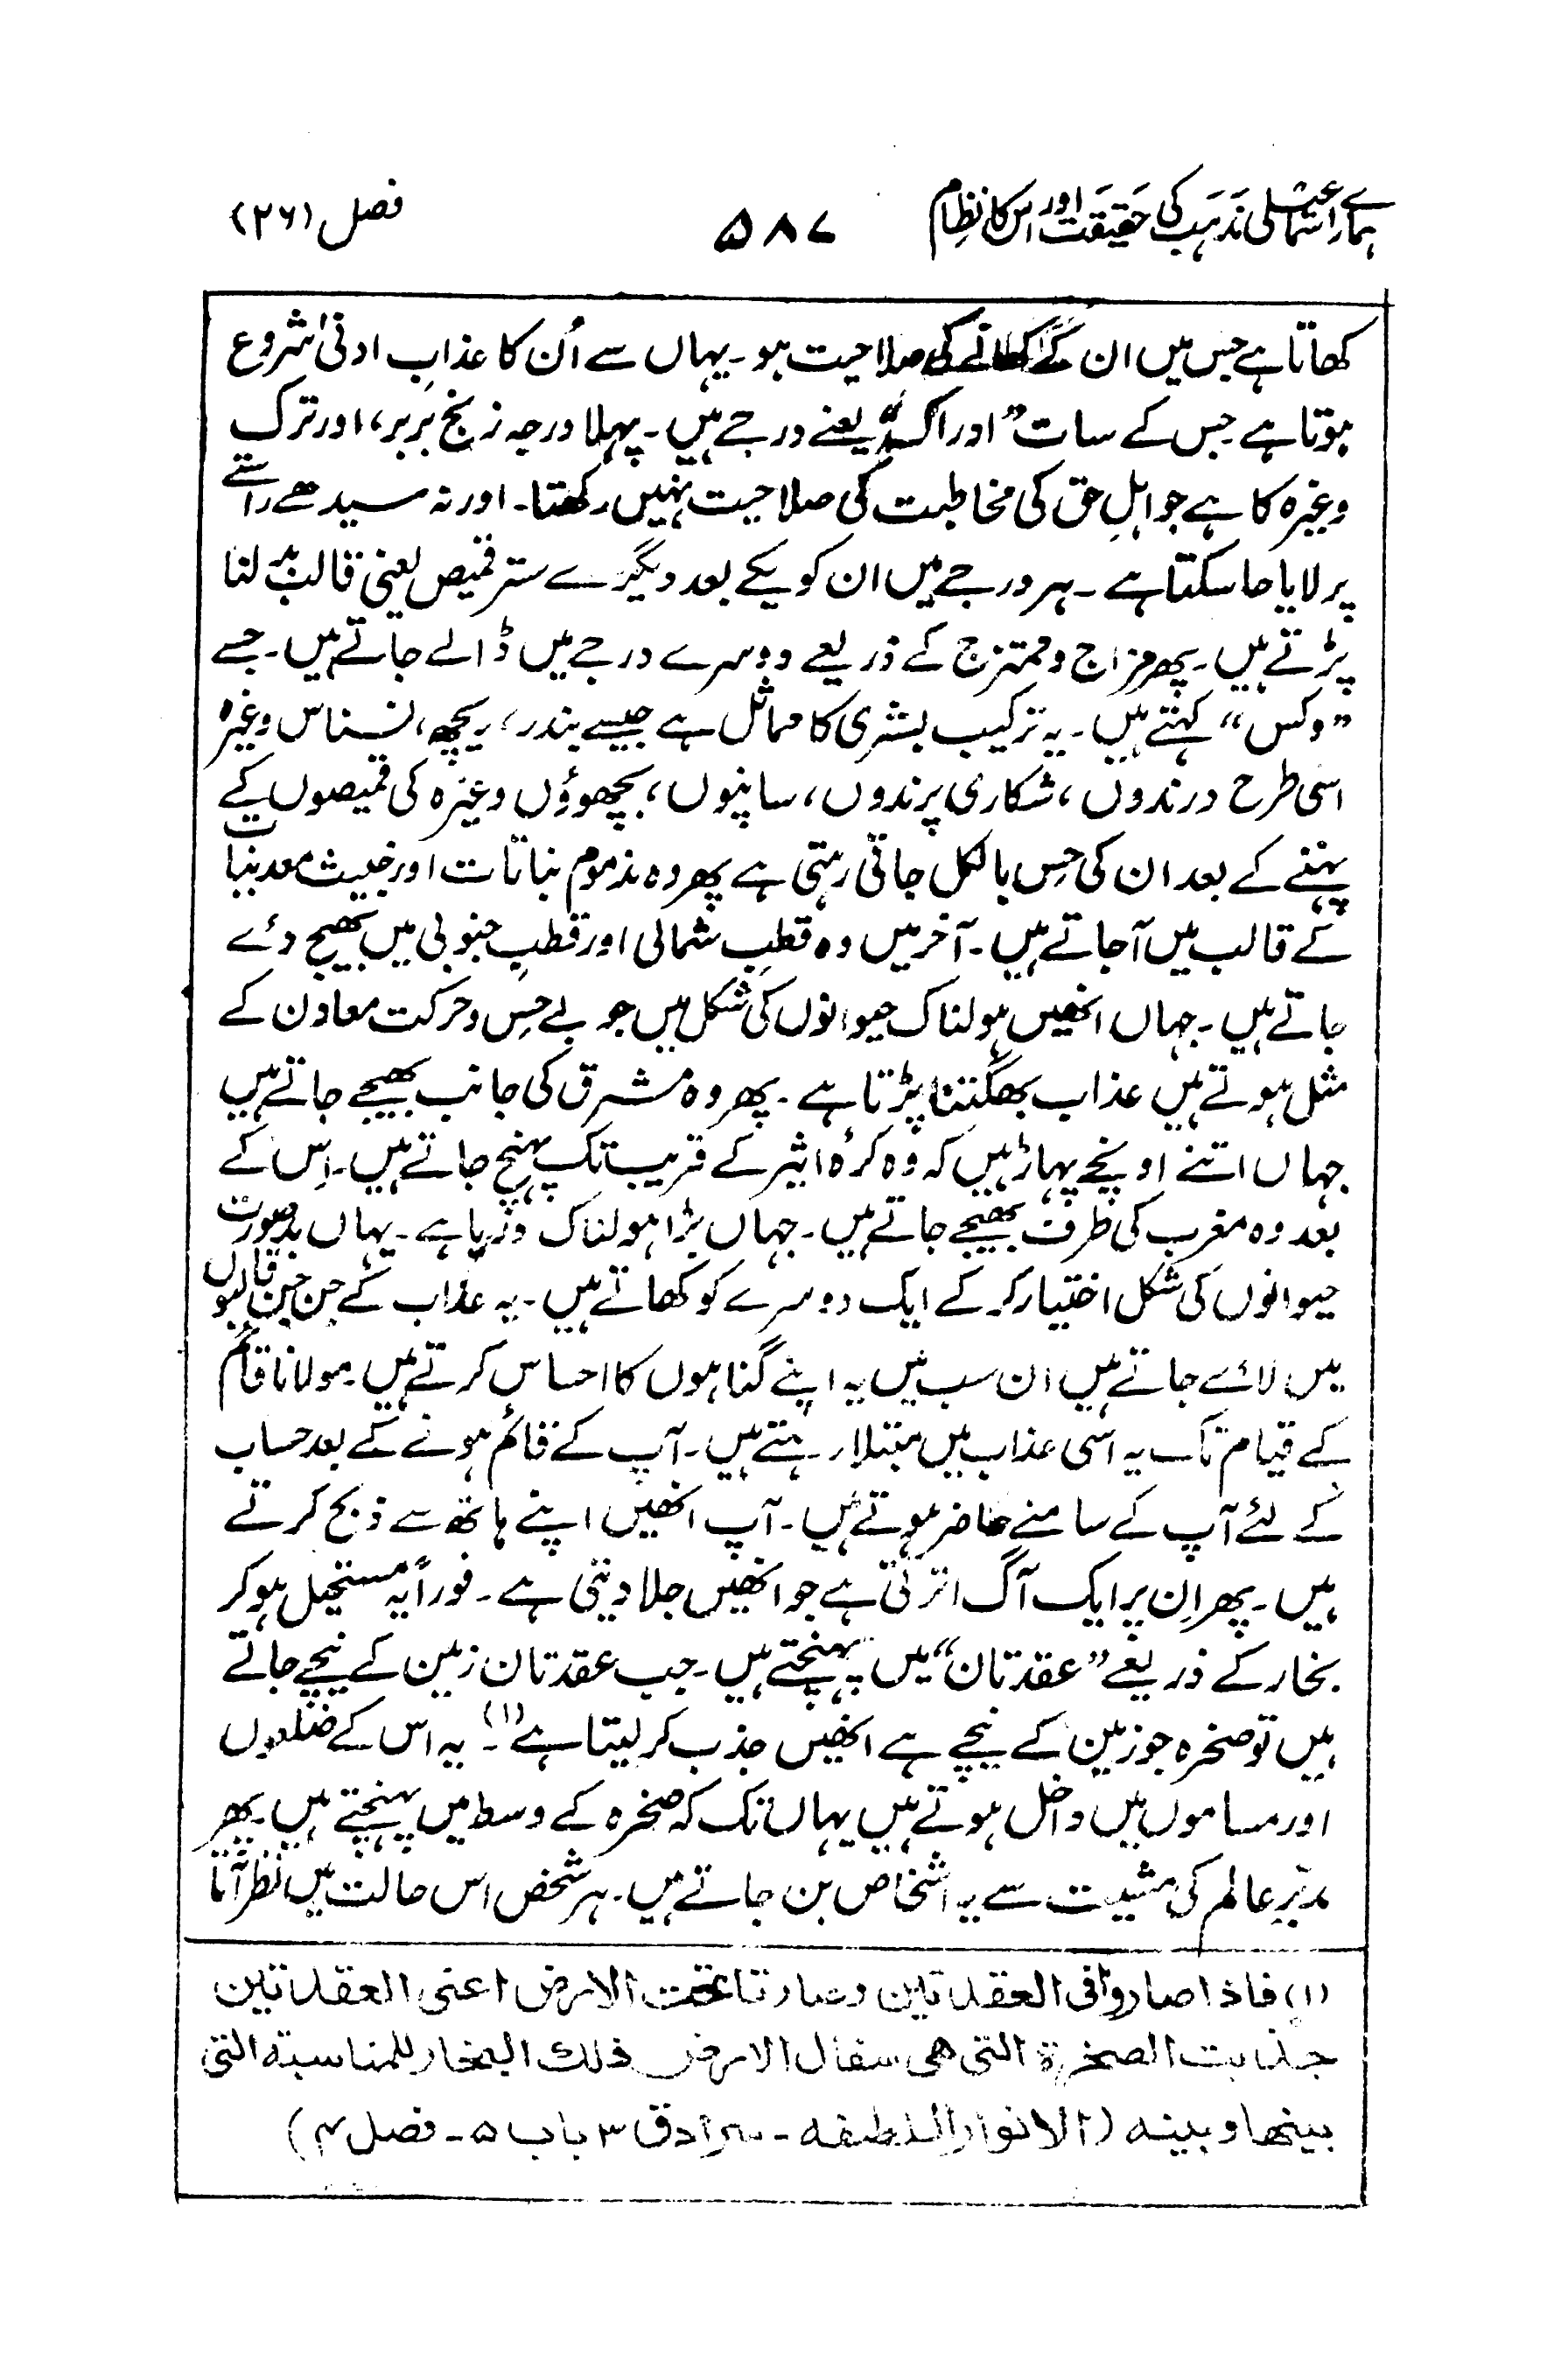 ہمارے اسماعیلی مذہب کی حقیقت اور اس کا نظام ۵۸۷ فصل (۲۶)
کھاتا ہے جس میں ان کے کھانے کی صلاحیت ہو۔ یہاں سے اُن کا عذابِ ادنیٰ شروع
ہوتا ہے جس کے سات ”ادراک“ یعنے درجے ہیں۔ پہلا درجہ زنج بربر، اور ترک
وغیرہ کا ہے جو اہلِ حق کی مخاطبت کی صلاحیت نہیں رکھتا۔ اور نہ سیدھے راستے
پر لایا جاسکتا ہے۔ ہر درجے میں ان کو یکے بعد دیگرے ستر قمیص یعنی قالب بدلنا
پڑتے ہیں۔ پھر مزاج و ممتزج کے ذریعے دوسرے درجے میں ڈالے جاتے ہیں۔ جسے
”وکس“ کہتے ہیں۔ یہ ترکیب بشری کا مماثل ہے جیسے بندر، ریچھ، نسناس وغیرہ
اسی طرح درندوں، شکاری پرندوں، سانپوں، بچھوؤں وغیرہ کی قمیصوں کے
پہننے کے بعد ان کی حِس بالکل جاتی رہتی ہے پھر وہ مذموم نباتات اور خبیث معدنیات
کے قالب میں آجاتے ہیں۔ آخر میں وہ قطبِ شمالی اور قطبِ جنوبی میں بھیج دئے
جاتے ہیں۔ جہاں انھیں ہولناک حیوانوں کی شکل میں جو بے حِس و حرکت معادن کے
مثل ہوتے ہیں عذاب بھگتنا پڑتا ہے۔ پھر وہ مشرق کی جانب بھیجے جاتے ہیں
جہاں اتنے اونچے پہاڑ ہیں کہ وہ کرۂ اثیر کے قریب تک پہنچ جاتے ہیں۔ اِس کے
بعد وہ مغرب کی طرف بھیجے جاتے ہیں۔ جہاں بڑا ہولناک دریا ہے۔ یہاں بدصورت
حیوانوں کی شکل اختیار کرکے ایک دوسرے کو کھاتے ہیں۔ یہ عذاب کے جن جن قالبوں
میں لائے جاتے ہیں ان سب میں یہ اپنے گناہوں کا احساس کرتے ہیں۔ مولانا قائم
کے قیام تک یہ اسی عذاب میں مبتلا رہتے ہیں۔ آپ کے قائم ہونے کے بعد حساب
کے لئے آپ کے سامنے حاضر ہوتے ہیں۔ آپ انھیں اپنے ہاتھ سے ذبح کرتے
ہیں۔ پھر اِن پر ایک آگ اترتی ہے جو انھیں جلا دیتی ہے۔ فوراً یہ مستحیل ہوکر
بخار کے ذریعے ”عقدتان“ میں پہنچتے ہیں۔ جب عقدتان زمین کے نیچے جاتے
ہیں تو صخرہ جو زمین کے نیچے ہے انھیں جذب کرلیتا ہے(۱)۔ یہ اس کے
اور مساموں میں داخل ہوتے ہیں یہاں تک کہ صخرہ کے وسط میں پہنچتے ہیں۔ پھر
مدبّرِ عالم کی مشیت سے یہ اشخاص بن جاتے ہیں۔ ہر شخص اس حالت میں نظر آتا
(۱) فاذا صاروا فی العقدتین وصارتا تحت الارض اعنی العقدتین
جذبت الصخرة التی ھی سفال الارض ذلک البخار للمناسبة التی
بینھا وبینه (الانوار اللطیفه۔ سرادق ۳ باب ۵۔ فصل ۴)